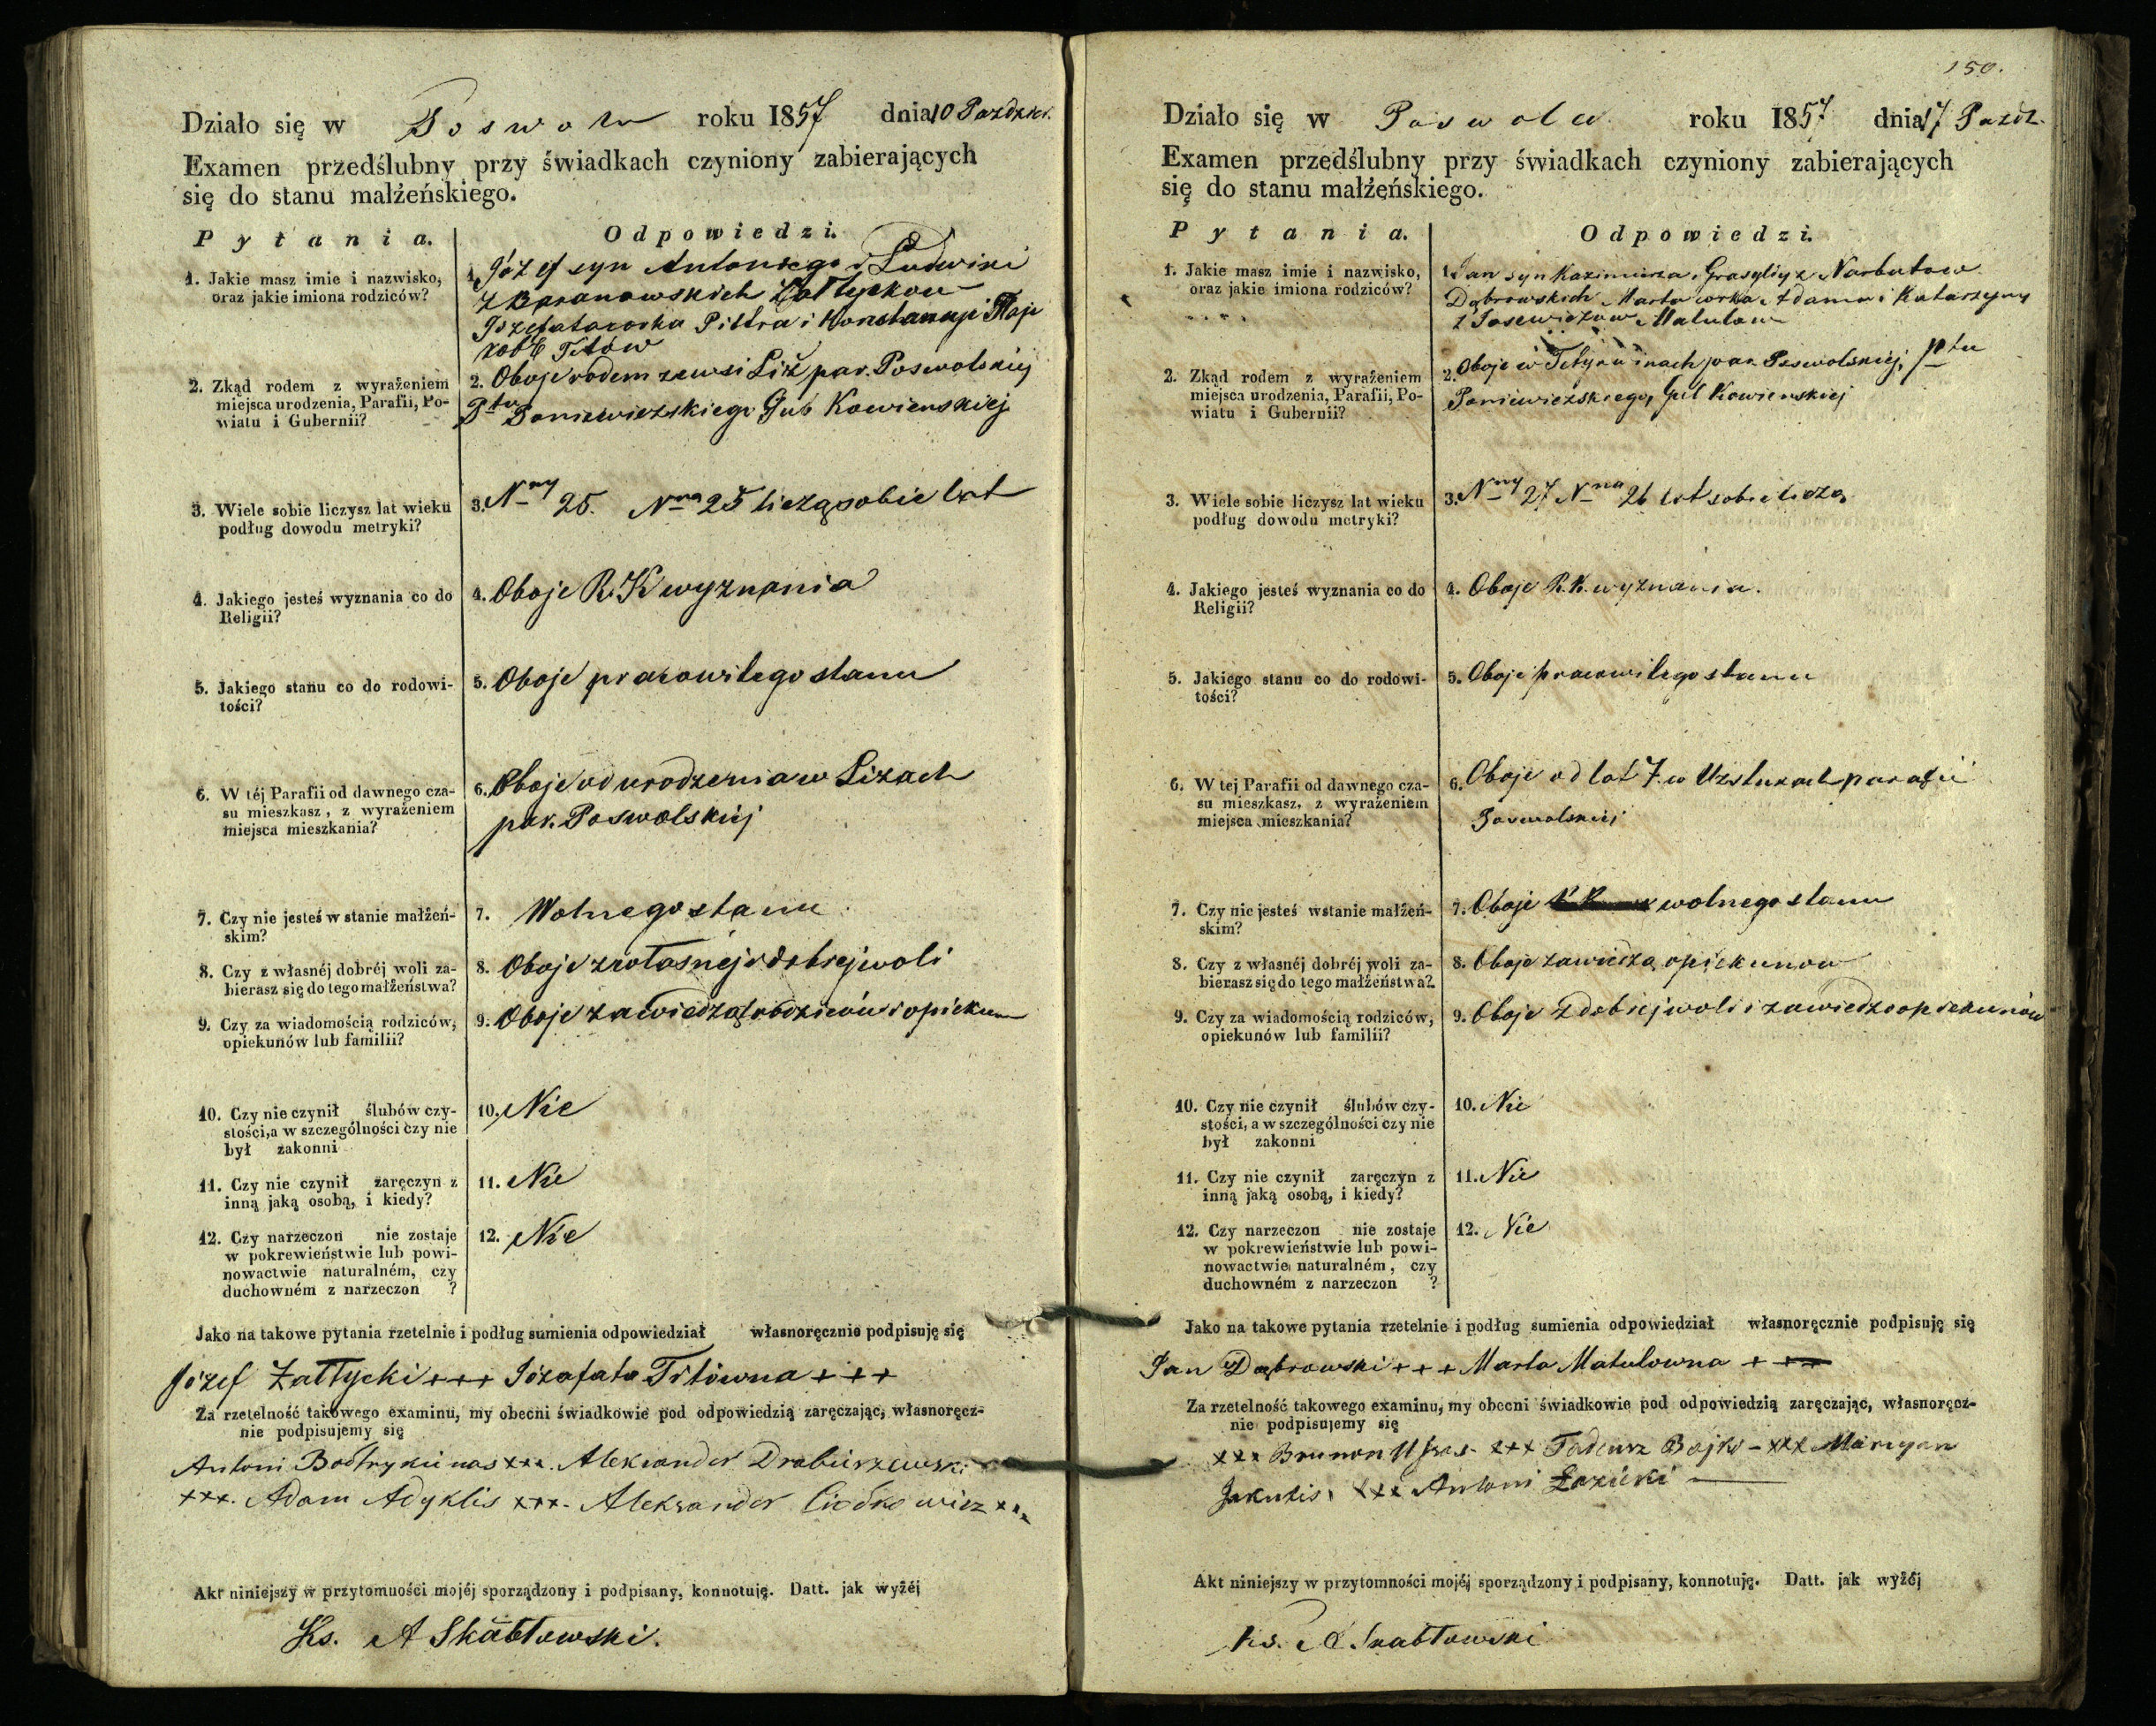 Działo się w Poswolu roku 1857 dnia 10 Paździer.
Examen przedślubny przy świadkach czyniony zabierających
się do stanu małżeńskiego.
Pytania. Odpowiedzi.
1. Jakie masz imie i nazwisko,
oraz jakie imiona rodziców?
1. Józef syn Antoniego i Ludwiki
z Baranowskich Żałtyckow
Józefata corka Piotra i Konstancyi
Titów
2. Zkąd rodem z wyrażeniem
miejsca urodzenia, Parafii, Po-
wiatu i Gubernii?
2. Oboje rodem zewsi Liż par. Poswolskiej
Ptu Poniewiezskiego Gub Kowienskiej
3. Wiele sobie liczysz lat wieku
podług dowodu metryki?
3. Nny 25. Nna 25 liczą sobie lat
4. Jakiego jesteś wyznania co do
Religii?
4. Oboje R. K wyznania
5. Jakiego stanu co do rodowi-
tości?
5. Oboje pracowitego stanu
6. W téj Parafii od dawnego cza-
su mieszkasz, z wyrażeniem
miejsca mieszkania?
6. Oboje od urodzenia w Lizach
par. Poswolskiej
7. Czy nie jesteś w stanie małżeń-
skim?
7. Wolnego stanu
8. Czy z własnéj dobréj woli za-
bierasz się do tego małżeństwa?
8. Oboje z własnej i dobrej woli
9. Czy za wiadomością rodziców,
opiekunów lub familii?
9. Oboje za wiedzą rodziców i opiekun
10. Czy nie czynił ślubów czy-
stości, a w szczególności czy nie
był zakonni
10. Nie
11. Czy nie czynił zaręczyn z
inną jaką osobą, i kiedy?
11. Nie
12. Czy narzeczon nie zostaje
w pokrewieństwie lub powi-
nowactwie naturalném, czy
duchowném z narzeczon ?
12. Nie
Jako na takowe pytania rzetelnie i podług sumienia odpowiedział własnoręcznie podpisuję się
Józef Żałtycki +++ Józafata Titówna +++
Za rzetelność takowego examinu, my obecni świadkowie pod odpowiedzią zaręczając, własnoręcz-
nie podpisujemy się
Antoni xxx. Alexander Drabiszewski
xxx. Adam Adyklis xxx. Aleksander xxx
Akt niniejszy w przytomności mojéj sporządzony i podpisany, konnotuję. Datt. jak wyżéj
Ks. A Skabłowski.
150.
Działo się w Poswolu roku 1857 dnia 17 Paźdz.
Examen przedślubny przy świadkach czyniony zabierających
się do stanu małżeńskiego.
Pytania. Odpowiedzi.
1. Jakie masz imie i nazwisko,
oraz jakie imiona rodziców?
1. Jan syn Kazimierza i Grasyldy z Narbutow
Dąbrowskich Marta corka Adama i Katarzyny
z Matulow
2. Zkąd rodem z wyrażeniem
miejsca urodzenia, Parafii, Po-
wiatu i Gubernii?
2. Oboje w par. Poswolskiej, Ptu
Poniewiezskiego, Gub Kowienskiej
3. Wiele sobie liczysz lat wieku
podług dowodu metryki?
3. Nny 27 Nna 26 lat sobie liczą
4. Jakiego jesteś wyznania co do
Religii?
4. Oboje R. K. wyznania.
5. Jakiego stanu co do rodowi-
tości?
5. Oboje pracowitego stanu
6. W tej Parafii od dawnego cza-
su mieszkasz, z wyrażeniem
miejsca mieszkania?
6. Oboje od lat 7. w parafii
Poswolskiej
7. Czy nie jesteś wstanie małżeń-
skim?
7. Oboje wolnego stanu
8. Czy z własnéj dobréj woli za-
bierasz się do tego małżeństwa?
8. Oboje za wiedzą opiekunow
9. Czy za wiadomością rodziców,
opiekunów lub familii?
9. Oboje z dobrej woli i za wiedzo opiekunów
10. Czy nie czynił ślubów czy-
stości, a w szczególności czy nie
był zakonni
10. Nie
11. Czy nie czynił zaręczyn z
inną jaką osobą, i kiedy?
11. Nie
12. Czy narzeczon nie zostaje
w pokrewieństwie lub powi-
nowactwie naturalném, czy
duchowném z narzeczon ?
12. Nie
Jako na takowe pytania rzetelnie i podług sumienia odpowiedział własnoręcznie podpisuję się
Jan Dąbrowski +++ Marta Matulowna +++
Za rzetelność takowego examinu, my obecni świadkowie pod odpowiedzią zaręczając, własnoręcz-
nie podpisujemy się
xxx Brunon xxx Tadeusz Bajko - xxx Maryan
Jakutis, xxx Antoni Łazicki
Akt niniejszy w przytomności mojéj sporządzony i podpisany, konnotuję. Datt. jak wyżéj
Ks. A Skabłowski